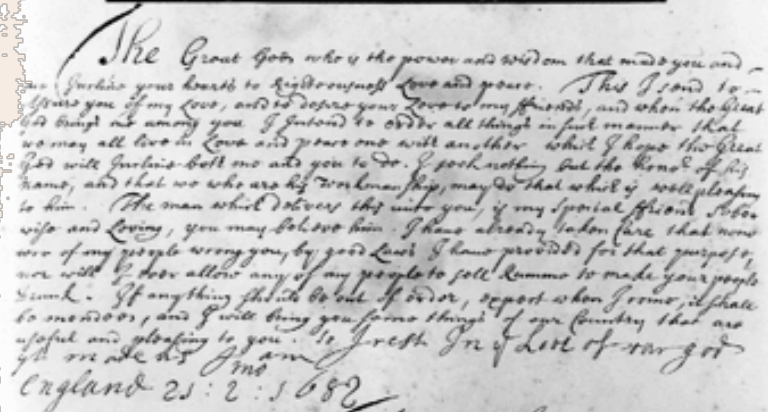 The Great God who is the power and wisdom that made you and
me Incline your hearts to Righteousness Love and peace. This I send to
Assure you of my Love, and to desire your Love to my ffriends, and when the Great
God brings me among you I Intend to order all things in such manner that
we may all live in Love and peace one with another which I hope the Great
God will Incline both me and you to do. I seek nothing but the honor of his
name, and that we who are his workmanship, may do that which is well pleasing
to him. The man which delivers this unto you, is my special ffriend Sober
wise and Loving, you may believe him. I have already taken Care that none
of my people wrong you, by good Laws I have provided for that purpose,
nor will I ever allow any of my people to sell Rumme to make your people
drunk. If anything should be out of order, expect when I come, it shall
be mended, and I will bring you some things of our Country that are
useful and pleasing to you. So I rest In ye Love of our god
yt made us I am
England 21 : 2 mo : 1682